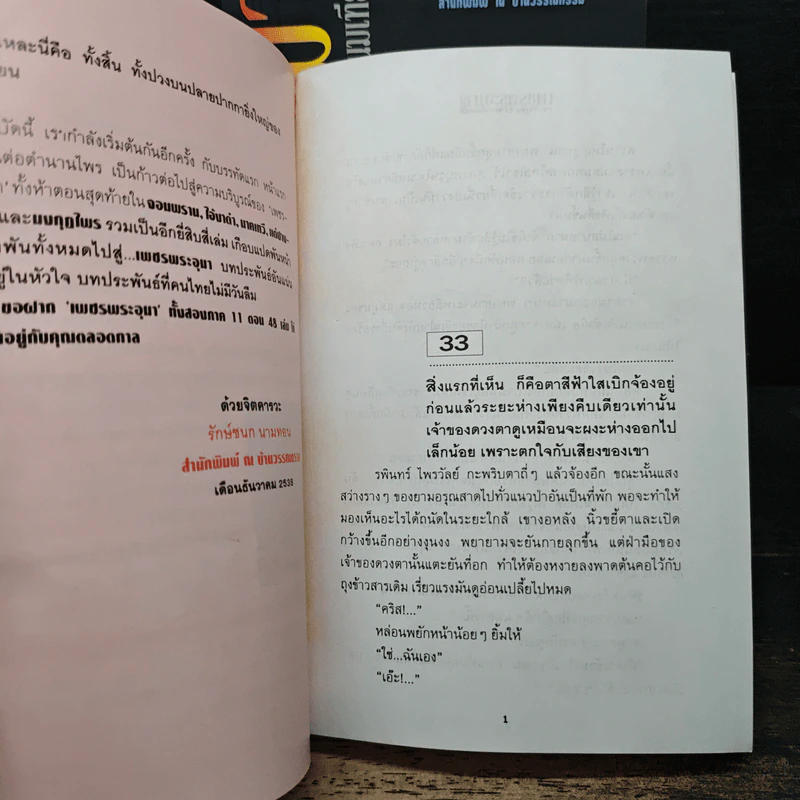 สำนักพิมพ์ ณ บ้านวรรณกรรม
เหละนี่คือ ทั้งสิ้น ทั้งปวงบนปลายปากกายิ่งใหญ่ของ
ยน
บัดนี้ เรากำลังเริ่มต้นกันอีกครั้ง กับบรรทัดแรก หน้าแรก
นต่อตำนานไพร เป็นก้าวต่อไปสู่ความบริบูรณ์ของ 'เพชร-
ทั้งห้าตอนสุดท้ายใน จอมพราน, ไอ้งาดำ, นาคเทวี,
และมงกุฎไพร รวมเป็นอีกยี่สิบสี่เล่ม เกือบแปดพันหน้า
พันทั้งหมดไปสู่...เพชรพระอุมา บทประพันธ์อันแน่น
ยู่ในหัวใจ บทประพันธ์ที่คนไทยไม่มีวันลืม
ขอฝาก 'เพชรพระอุมา' ทั้งสองภาค 11 ตอน 48 เล่ม ให้
อยู่กับคุณตลอดกาล
ด้วยจิตคารวะ
รักษ์ชนก นามทอน
สำนักพิมพ์ ณ บ้านวรรณกรรม
เดือนธันวาคม 2539
33
สิ่งแรกที่เห็น ก็คือตาสีฟ้าใสเบิกจ้องอยู่
ก่อนแล้วระยะห่างเพียงคืบเดียวเท่านั้น
เจ้าของดวงตาดูเหมือนจะผงะห่างออกไป
เล็กน้อย เพราะตกใจกับเสียงของเขา
รพินทร์ ไพรวัลย์ กะพริบตาถี่ๆ แล้วจ้องอีก ขณะนั้นแสง
สว่างรางๆ ของยามอรุณสาดไปทั่วแนวป่าอันเป็นที่พัก พอจะทำให้
มองเห็นอะไรได้ถนัดในระยะใกล้ เขางอหลัง นิ้วขยี้ตาและเปิด
กว้างขึ้นอีกอย่างงุนงง พยายามจะยันกายลุกขึ้น แต่ฝ่ามือของ
เจ้าของดวงตานั้นแตะยันที่อก ทำให้ต้องหงายลงพาดต้นคอไว้กับ
ถุงข้าวสารเดิม เรี่ยวแรงมันดูอ่อนเปลี้ยไปหมด
“คริส!...”
หล่อนพยักหน้าน้อยๆ ยิ้มให้
“ใช่...ฉันเอง”
“เอ๊ะ!...”
1